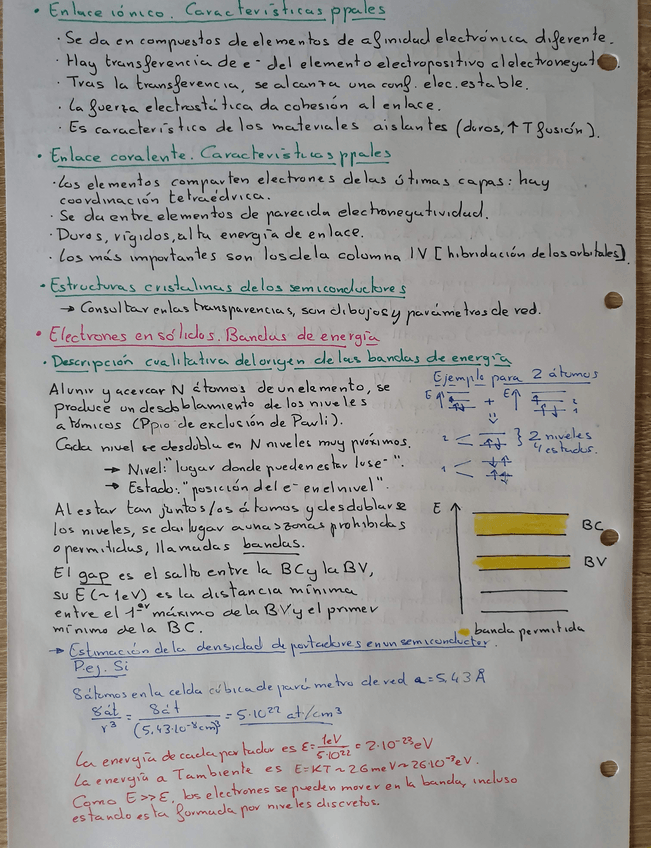 • Enlace iónico. Características ppales
· Se da en compuestos de elementos de afinidad electrónica diferente.
· Hay transferencia de e⁻ del elemento electropositivo al electronegat
· Tras la transferencia, se alcanza una conf. elec. estable.
· La fuerza electrostática da cohesión al enlace.
· Es característico de los materiales aislantes (duros, ↑ T fusión).
• Enlace covalente. Características ppales
· Los elementos comparten electrones de las útimas capas: hay
coordinación tetraédrica.
· Se da entre elementos de parecida electronegatividad.
· Duros, rígidos, alta energía de enlace.
· Los más importantes son los de la columna IV [hibridación de los orbitales]
• Estructuras cristalinas de los semiconductores
→ Consultar en las transparencias, son dibujos y parámetros de red.
• Electrones en sólidos. Bandas de energía
• Descripción cualitativa del origen de las bandas de energía
Al unir y acercar N átomos de un elemento, se
produce un desdoblamiento de los niveles
atómicos (Ppio de exclusión de Pauli).
Cada nivel se desdobla en N niveles muy próximos.
→ Nivel: "lugar donde pueden estar los e⁻".
→ Estado: "posición del e⁻ en el nivel".
Al estar tan juntos los átomos y desdoblarse
los niveles, se da lugar a unas zonas prohibidas
o permitidas, llamadas bandas.
El gap es el salto entre la BC y la BV,
su E (~1eV) es la distancia mínima
entre el 1er máximo de la BV y el primer
mínimo de la BC.
Ejemplo para 2 átomos
E↑ + E↑ 2
1
2 < } 2 niveles
4 estados.
1 <
E
BC
BV
banda permitida
→ Estimación de la densidad de portadores en un semiconductor.
P.ej. Si
8 átomos en la celda cúbica de parámetro de red a = 5,43 Å
8 át / r³ = 8 át / (5,43·10⁻⁸cm)³ = 5·10²² at/cm³
La energía de cada portador es E = 1eV / 5·10²² = 2·10⁻²³ eV
La energía a Tambiente es E=KT ~ 26meV ~ 26·10⁻³ eV.
Como E >> E, los electrones se pueden mover en la banda, incluso
estando esta formada por niveles discretos.